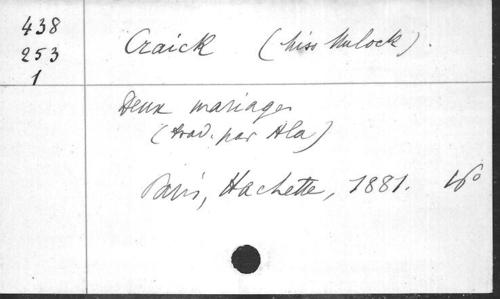 438
253
1
Craick (Miss Mulock).
Deux mariages
(trad. par Ala)
Paris, Hachette, 1881. 16°